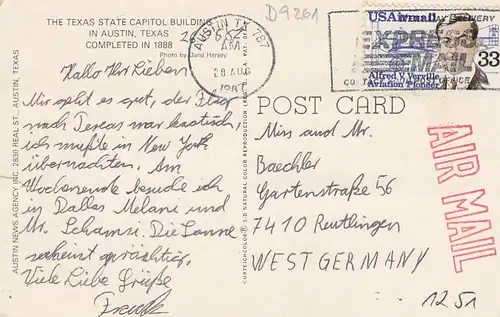 THE TEXAS STATE CAPITOL BUILDING
IN AUSTIN, TEXAS
COMPLETED IN 1888
Photo by Dana Hersey
D9261
AUSTIN TX 787
AM
28 AUG
USAirmail
EXPRESS
MAIL
Alfred V. Verville
Aviation Pioneer
33
Hallo Ihr Lieben
Mir geht es gut, der Flug
nach Texas war hektisch,
ich mußte in New York
übernachten. Am
Wochenende besuche ich
in Dallas Melani und
Mr. Schamsi. Die Sonne
scheint prächtig.
Viele Liebe Grüße
Frank
AUSTIN NEWS AGENCY INC. 2830 REAL ST., AUSTIN, TEXAS
CURTEICHCOLOR® 3-D NATURAL COLOR REPRODUCTION
POST CARD
Miss and Mr.
Baechler
Gartenstraße 56
7410 Reutlingen
WEST GERMANY
AIR MAIL
1251